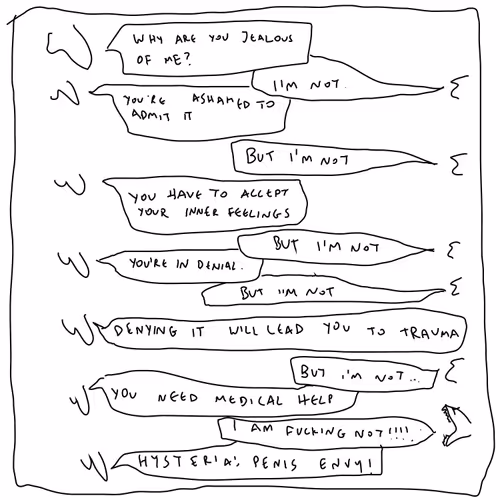 WHY ARE YOU JEALOUS
OF ME?
I'M NOT.
YOU'RE ASHAMED TO
ADMIT IT
BUT I'M NOT
YOU HAVE TO ACCEPT
YOUR INNER FEELINGS
BUT I'M NOT
YOU'RE IN DENIAL.
BUT I'M NOT
DENYING IT WILL LEAD YOU TO TRAUMA
BUT I'M NOT...
YOU NEED MEDICAL HELP
I AM FUCKING NOT!!!!
HYSTERIA! PENIS ENVY!